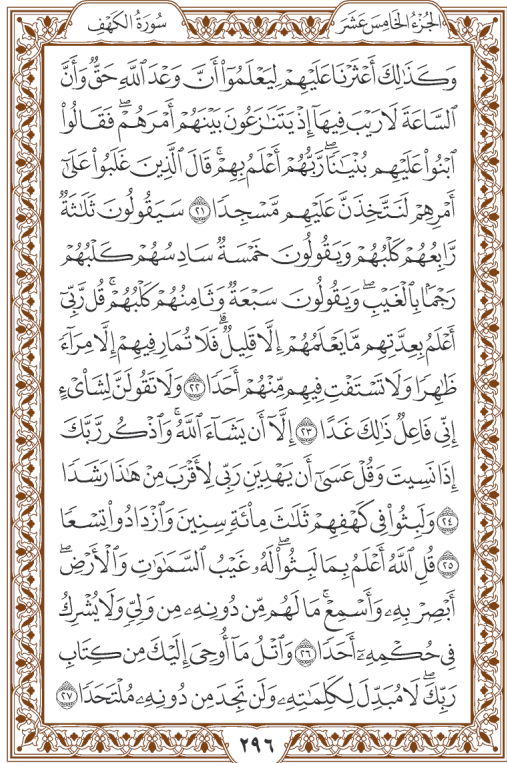 الجُزْءُ الخَامِسَ عَشَرَ
سُورَةُ الكَهْفِ
وَكَذَٰلِكَ أَعْثَرْنَا عَلَيْهِمْ لِيَعْلَمُوٓا۟ أَنَّ وَعْدَ ٱللَّهِ حَقٌّ وَأَنَّ
ٱلسَّاعَةَ لَا رَيْبَ فِيهَآ إِذْ يَتَنَٰزَعُونَ بَيْنَهُمْ أَمْرَهُمْ ۖ فَقَالُوا۟
ٱبْنُوا۟ عَلَيْهِم بُنْيَٰنًا ۖ رَّبُّهُمْ أَعْلَمُ بِهِمْ ۚ قَالَ ٱلَّذِينَ غَلَبُوا۟ عَلَىٰٓ
أَمْرِهِمْ لَنَتَّخِذَنَّ عَلَيْهِم مَّسْجِدًا ٢١ سَيَقُولُونَ ثَلَٰثَةٌ
رَّابِعُهُمْ كَلْبُهُمْ وَيَقُولُونَ خَمْسَةٌ سَادِسُهُمْ كَلْبُهُمْ
رَجْمًۢا بِٱلْغَيْبِ ۖ وَيَقُولُونَ سَبْعَةٌ وَثَامِنُهُمْ كَلْبُهُمْ ۚ قُل رَّبِّىٓ
أَعْلَمُ بِعِدَّتِهِم مَّا يَعْلَمُهُمْ إِلَّا قَلِيلٌ ۗ فَلَا تُمَارِ فِيهِمْ إِلَّا مِرَآءً
ظَٰهِرًا وَلَا تَسْتَفْتِ فِيهِم مِّنْهُمْ أَحَدًا ٢٢ وَلَا تَقُولَنَّ لِشَا۟ىْءٍ
إِنِّى فَاعِلٌ ذَٰلِكَ غَدًا ٢٣ إِلَّآ أَن يَشَآءَ ٱللَّهُ ۚ وَٱذْكُر رَّبَّكَ
إِذَا نَسِيتَ وَقُلْ عَسَىٰٓ أَن يَهْدِيَنِ رَبِّى لِأَقْرَبَ مِنْ هَٰذَا رَشَدًا
٢٤ وَلَبِثُوا۟ فِى كَهْفِهِمْ ثَلَٰثَ مِا۟ئَةٍ سِنِينَ وَٱزْدَادُوا۟ تِسْعًا
٢٥ قُلِ ٱللَّهُ أَعْلَمُ بِمَا لَبِثُوا۟ ۖ لَهُۥ غَيْبُ ٱلسَّمَٰوَٰتِ وَٱلْأَرْضِ ۖ
أَبْصِرْ بِهِۦ وَأَسْمِعْ ۚ مَا لَهُم مِّن دُونِهِۦ مِن وَلِىٍّ وَلَا يُشْرِكُ
فِى حُكْمِهِۦٓ أَحَدًا ٢٦ وَٱتْلُ مَآ أُوحِىَ إِلَيْكَ مِن كِتَابِ
رَبِّكَ ۖ لَا مُبَدِّلَ لِكَلِمَٰتِهِۦ وَلَن تَجِدَ مِن دُونِهِۦ مُلْتَحَدًا ٢٧
٢٩٦